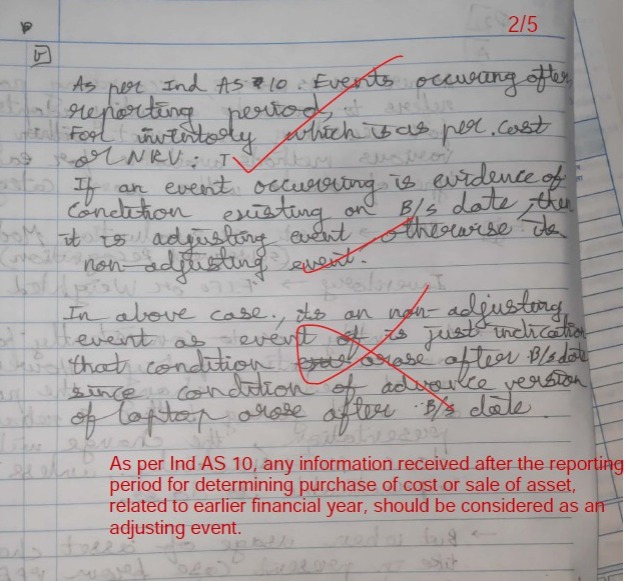 2/5
As per Ind AS 10. Events occuring after
reporting period,
For inventory which is as per. cost
or NRV. I
If an event occurring is evidence of
condition existing on B/s date, then
it is adjusting event otherwise its
non-adjusting event.
In above case, its an non-adjusting
event as event is just indication
that condition arose after B/s date
since condition of advance version
of laptop arose after B/s date.
As per Ind AS 10, any information received after the reporting
period for determining purchase of cost or sale of asset,
related to earlier financial year, should be considered as an
adjusting event.